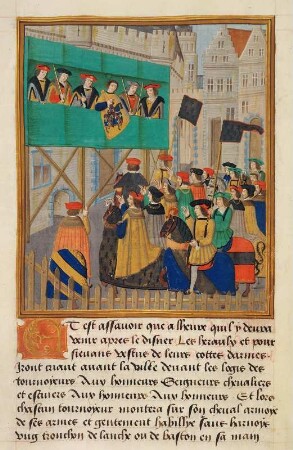 Et est assavoir que a lheure quil y devra
venir apres le disner Les heraulx et pour
suivans vestus de leurs cottes darmes
Iront criant avant la ville devant les logis des
tournoyeurs Aux honneurs Seigneurs chevaliers
et escuiers Aux honneurs Aux honneurs Et lors
chascun tournoyeur montera sur son cheval armoye
de ses armes et gentement habillye sans harnoys
ung tronchon de lanche ou de baston en sa main